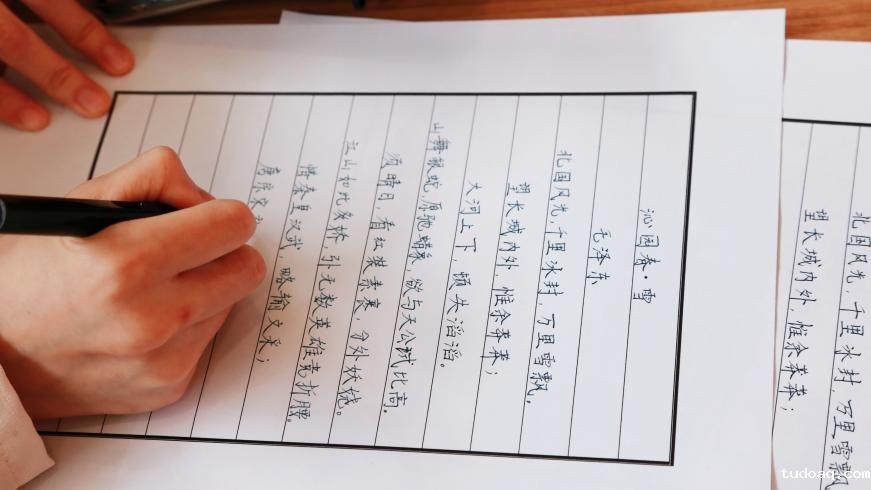 沁园春·雪
毛泽东
北国风光，千里冰封，万里雪飘。
望长城内外，惟余莽莽；
大河上下，顿失滔滔。
山舞银蛇，原驰蜡象，欲与天公试比高。
须晴日，看红装素裹，分外妖娆。
江山如此多娇，引无数英雄竞折腰。
惜秦皇汉武，略输文采；
唐宗宋
北国风光，千里冰封，万里雪飘
望长城内外，惟余莽莽；
tudoaq.com